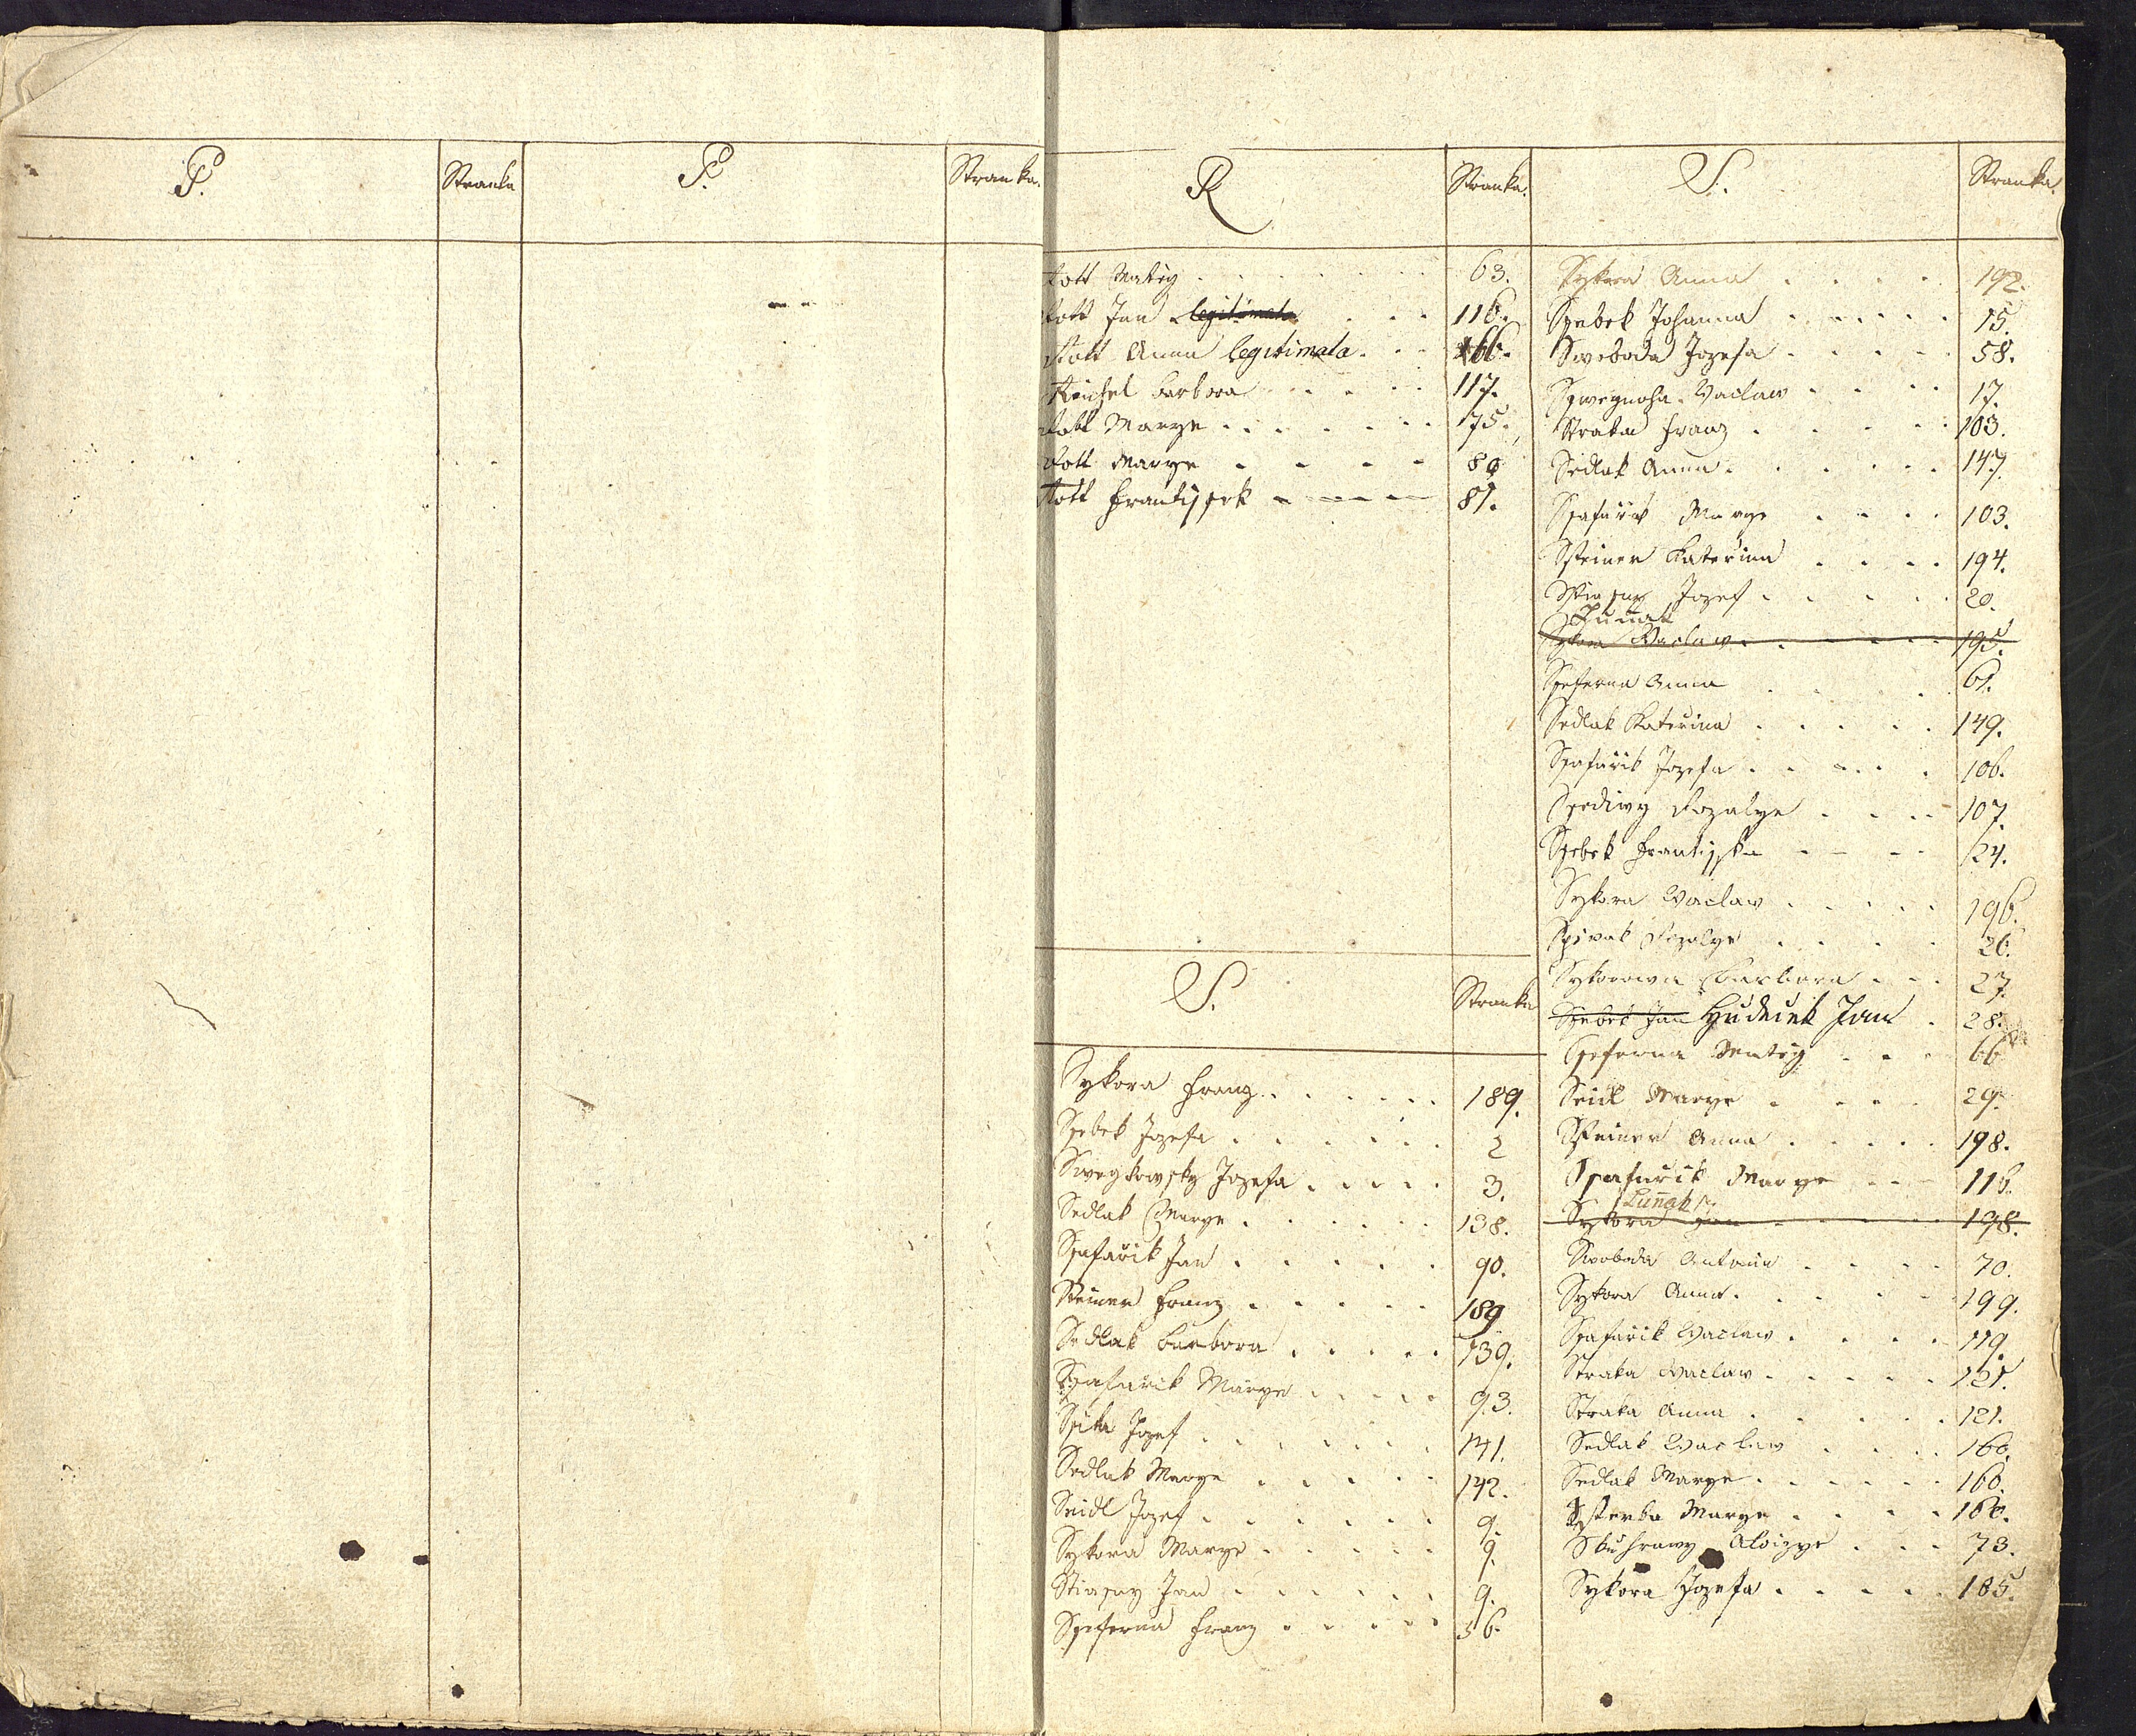 P.
Stranka
P.
Stranka.
R
Stranka.
Rott Matěg 63.
Rott Jan legitimata 116.
Rott Anna legitimata. 166.
Reichel Barbora 117.
Rott Marye 175.
Rott Marye 80
Rott Frantissek 81.
S.
Stranka
Sykora Franz 189.
Ssebek Jozefa 2
Swegkowsky Jozefa 3.
Sedlak Marye 138.
Ssafařik Jan 90.
Steiner Franz 189
Sedlak Barbora 139.
Ssafařik Marye 93.
Jozef 141.
Sedlak Marye 142.
Seidl Jozef 9.
Sykora Marye 9.
Stiasny Jan 9.
Sseferna Franz 56.
S.
Stranka.
Sykora Anna 192.
Ssebek Johanna 15.
Sweboda Jozefa 58.
Sswegnoha Vaclaw 17.
Straka Franz 103.
Sedlak Anna 147.
Ssafařik Marye 103.
Steiner Kateřina 194.
Stiasny Jozef 20.
Luňak
Sykora Waclaw 195.
Sseferna Anna 61.
Sedlak Kateřina 149.
Ssafařik Jozefa 106.
Ssediwy Rozalye 107.
Ssebek Frantisska 124.
Sykora Waclaw 196.
Spivak Rozalye 26.
Sykorowa Barbora 27.
Ssebek Jan Hudeiek Jan 28.
Sseferna Matěg 66
Seidl Marye 29.
Steiner Anna 198.
Ssafařik Marye 116.
Luňak
Sykora Jan 198.
Swoboda Antonin 70.
Sykora Anna 199.
Ssafařik Waclaw 119.
Straka Waclaw 121.
Straka Anna 121.
Sedlak Waclaw 160.
Sedlak Marye 160.
Ssterba Marye 166.
Skuhrawy Aloizye 73.
Sykora Jozefa 185.